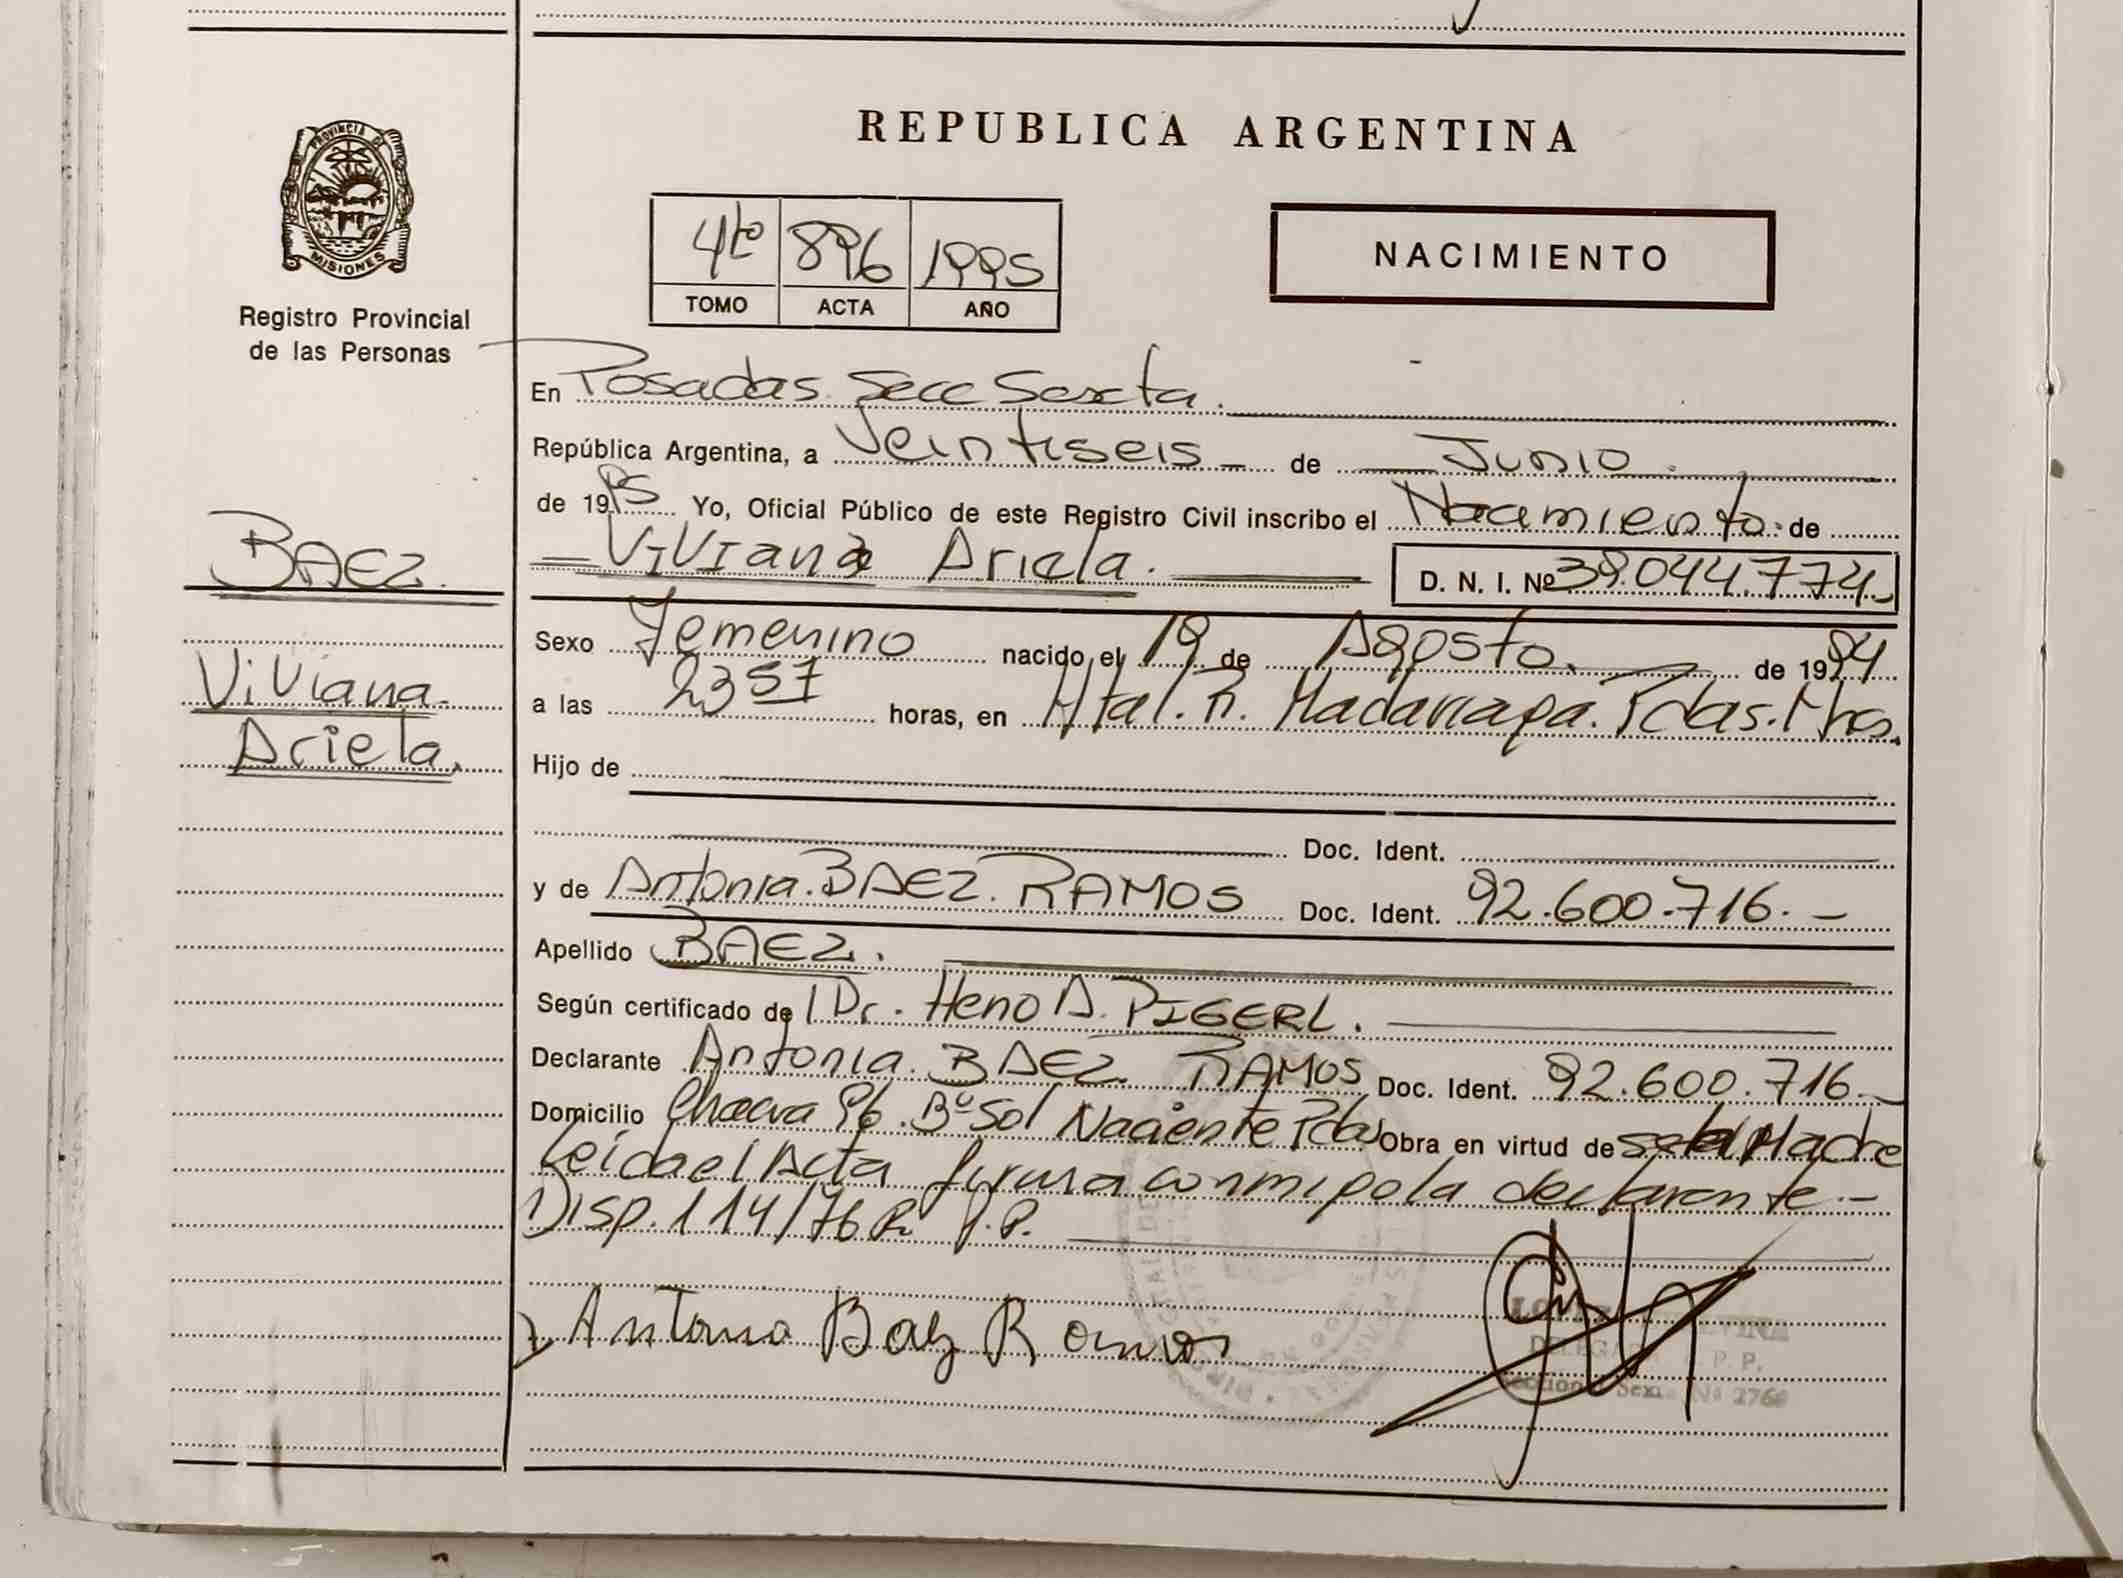 REPUBLICA ARGENTINA
PROVINCIA DE
MISIONES
Registro Provincial
de las Personas
4to 896 1995
TOMO ACTA AÑO
NACIMIENTO
En Posadas. Secc Sexta.
República Argentina, a Veintiseis de Junio.
de 1995 Yo, Oficial Público de este Registro Civil inscribo el Nacimiento. de
BAEZ.
Viviana Ariela. D. N. I. Nº 39.044.774
Sexo Femenino nacido el 19 de Agosto. de 1994
Viviana.
a las 23 57 horas, en Htal. R. Madariaga. Pdas. Mnes.
Ariela.
Hijo de
Doc. Ident.
y de Antonia. BAEZ. RAMOS Doc. Ident. 92.600.716.
Apellido BAEZ.
Según certificado de l Dr. Heno A. PIGERL.
Declarante Antonia. BAEZ RAMOS Doc. Ident. 92.600.716.
Domicilio Chacra 96. Bº Sol Naciente Pdas Obra en virtud de Madre
Leida el Acta firma conmigo la declarante.
Disp. 114/76 R. P. P.
Antonia Baez Ramos
DELEGADA R. P. P.
Sección Sexta Nº 276